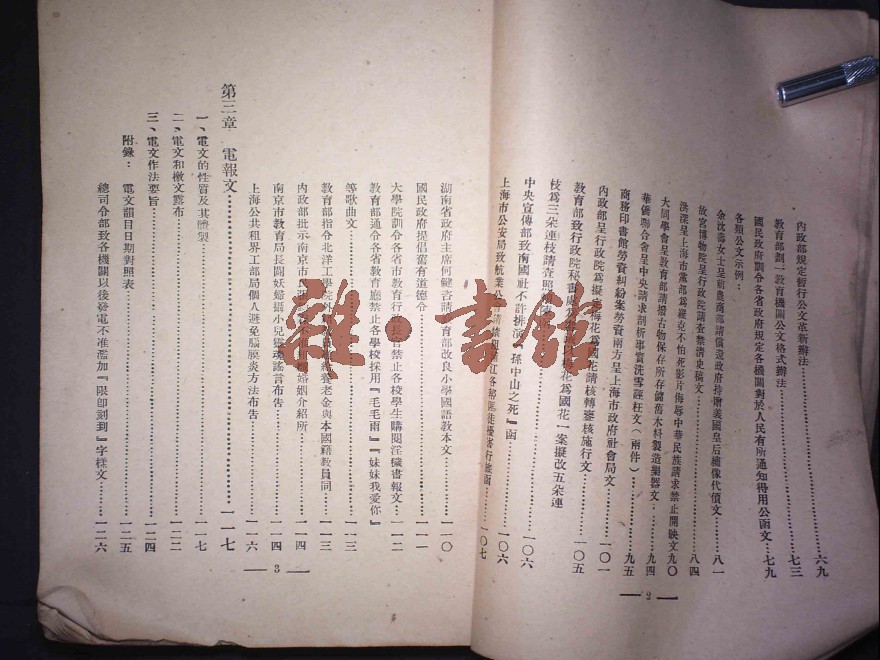 內政部規定暫行公文革新辦法……六九
教育部劃一教育機關公文格式辦法……七三
國民政府訓令各省政府規定各機關對於人民有所通知得用公函文…七九
各類公文示例：
余沈壽女士呈前農商部請償造政府持贈義國皇后繡像代價文……八一
故宮博物院呈行政院請查禁清史稿文……八四
洪深呈上海市黨部為羅克不怕死影片侮辱中華民族請求禁止開映文九〇
大同學會呈教育部請撥古物保存所存儲舊木料製造樂器文……九四
華僑聯合會呈中央請求剖析事實洗雪誣枉文（兩件）……九五
商務印書館勞資糾紛案勞資兩方呈上海市政府社會局文
內政部呈行政院為擬定梅花為國花請核轉鑒核施行文……一〇一
教育部致行政院秘書處為花為國花一案擬改五朵連……一〇五
枝為三朵連枝請查照
中央宣傳部致南國社不許排演『孫中山之死』函……一〇六
上海市公安局致航業公請禁江各輪匪徒審行旅函……一〇七
2
湖南省政府主席何鍵咨請教育部改良小學國語教本文……一一〇
國民政府提倡舊有道德令……一一一
大學院訓令各省市教育行政長官禁止各校學生購閱淫穢書報文…一一二
教育部通令各省教育廳禁止各學校採用『毛毛雨』『妹妹我愛你』
等歌曲文……一一三
教育部指令北洋工學院外養老金與本國籍教員同……一一三
內政部批示南京市民不准婚姻介紹所……一一四
南京市教育局長闢妖婦攝小兒靈魂謠言布告……一一四
上海公共租界工部局個人避免腦膜炎方法布告……一一六
第三章　電報文……一一七
一、電文的性質及其體製……一一七
二、電文和檄文露布……一二二
三、電文作法要旨……一二四
附錄：電文韻目日期對照表……一二五
總司令部致各機關以後發電不准濫加『限即刻到』字樣文……一二六
3
雜·書館